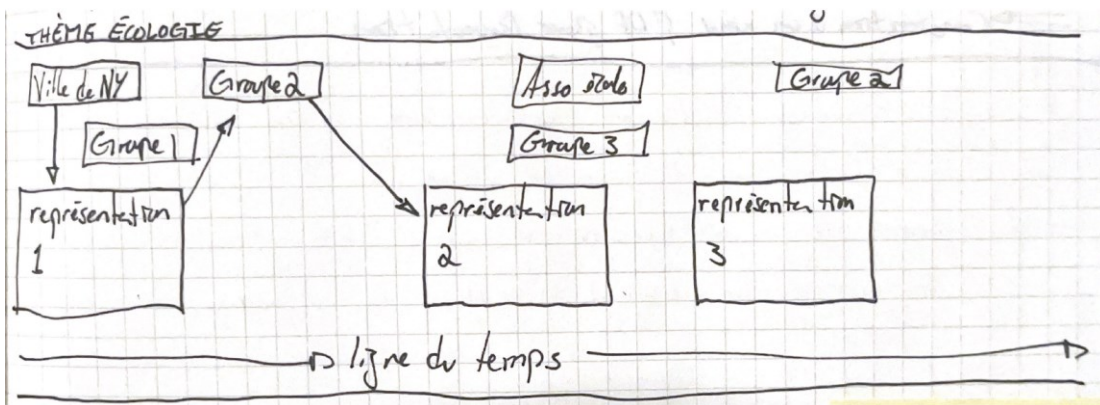 THÈME ÉCOLOGIE
Ville de NY
Groupe 2
Asso écolo
Groupe 2
Groupe 1
Groupe 3
représentation
1
représentation
2
représentation
3
ligne du temps